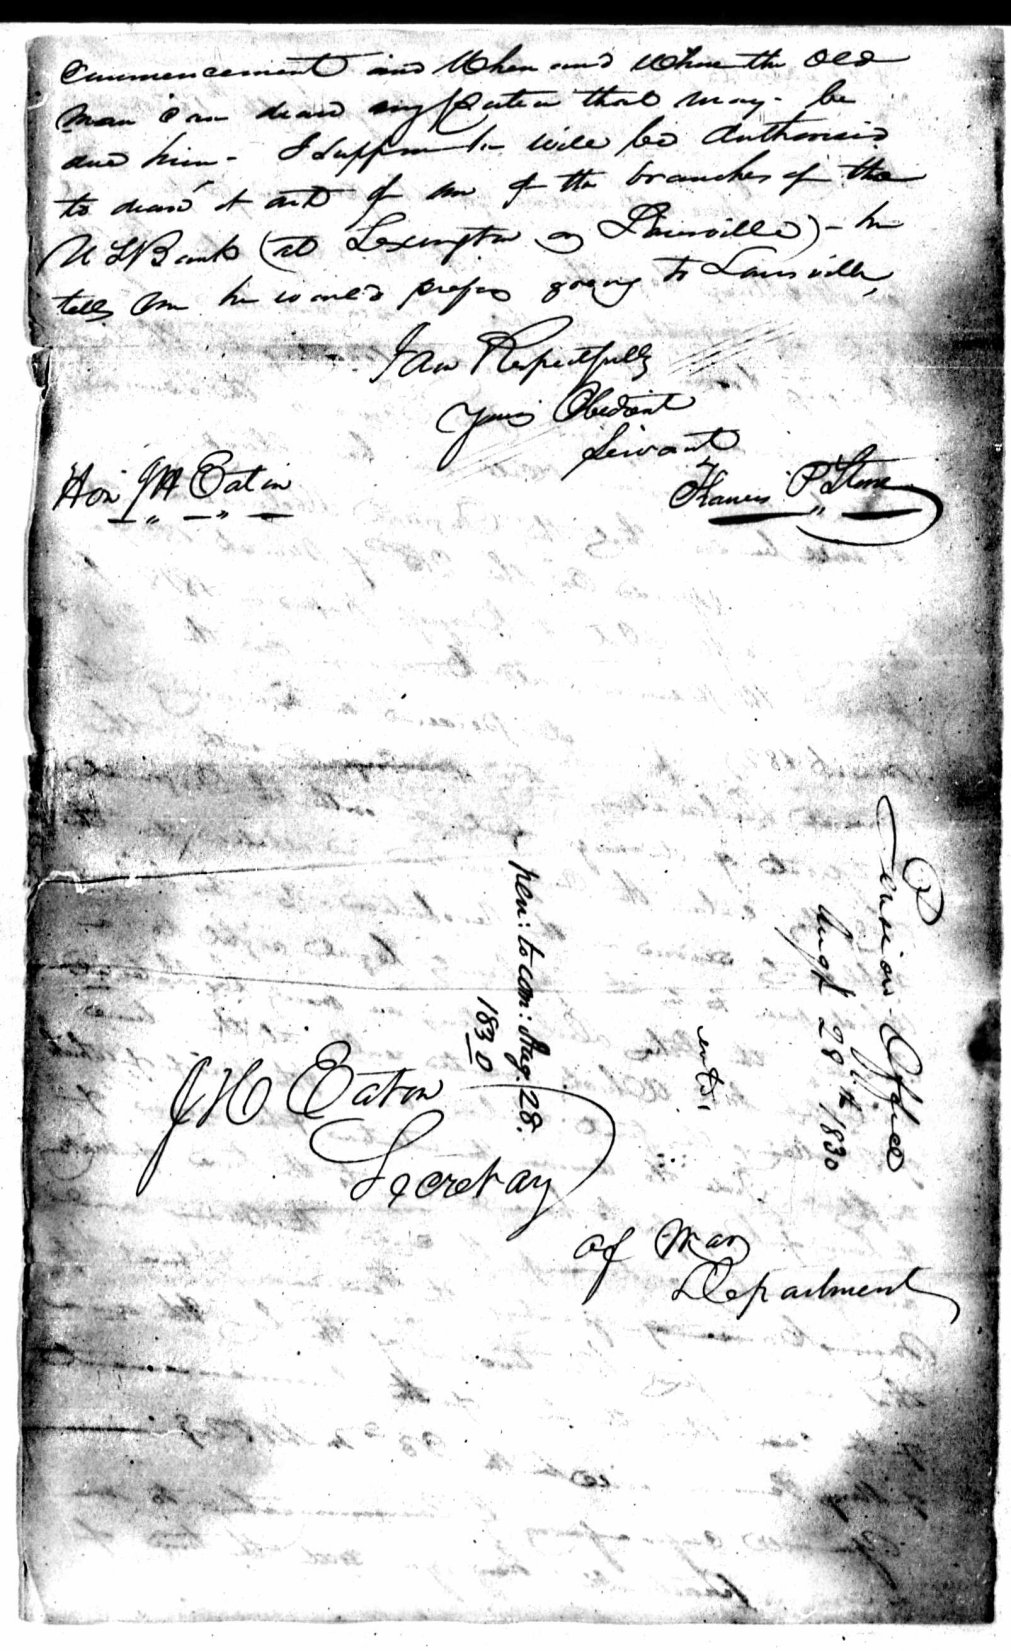 Commencement and When and Where the Old
man can draw any that may be
due him - I suppose he will be Authorised
to draw it out of one of the branches of the
U S Bank (at Lexington or Louisville) - he
tells me he would prefer going to Louisville,
I am Respectfully
Your Obedient
Servant
Francis P Stone
Hon J H Eaton
Pension Office
Augt 28th 1830
entd.
pen: to com: Aug. 28.
1830
J H Eaton
Secretary
of War
Department